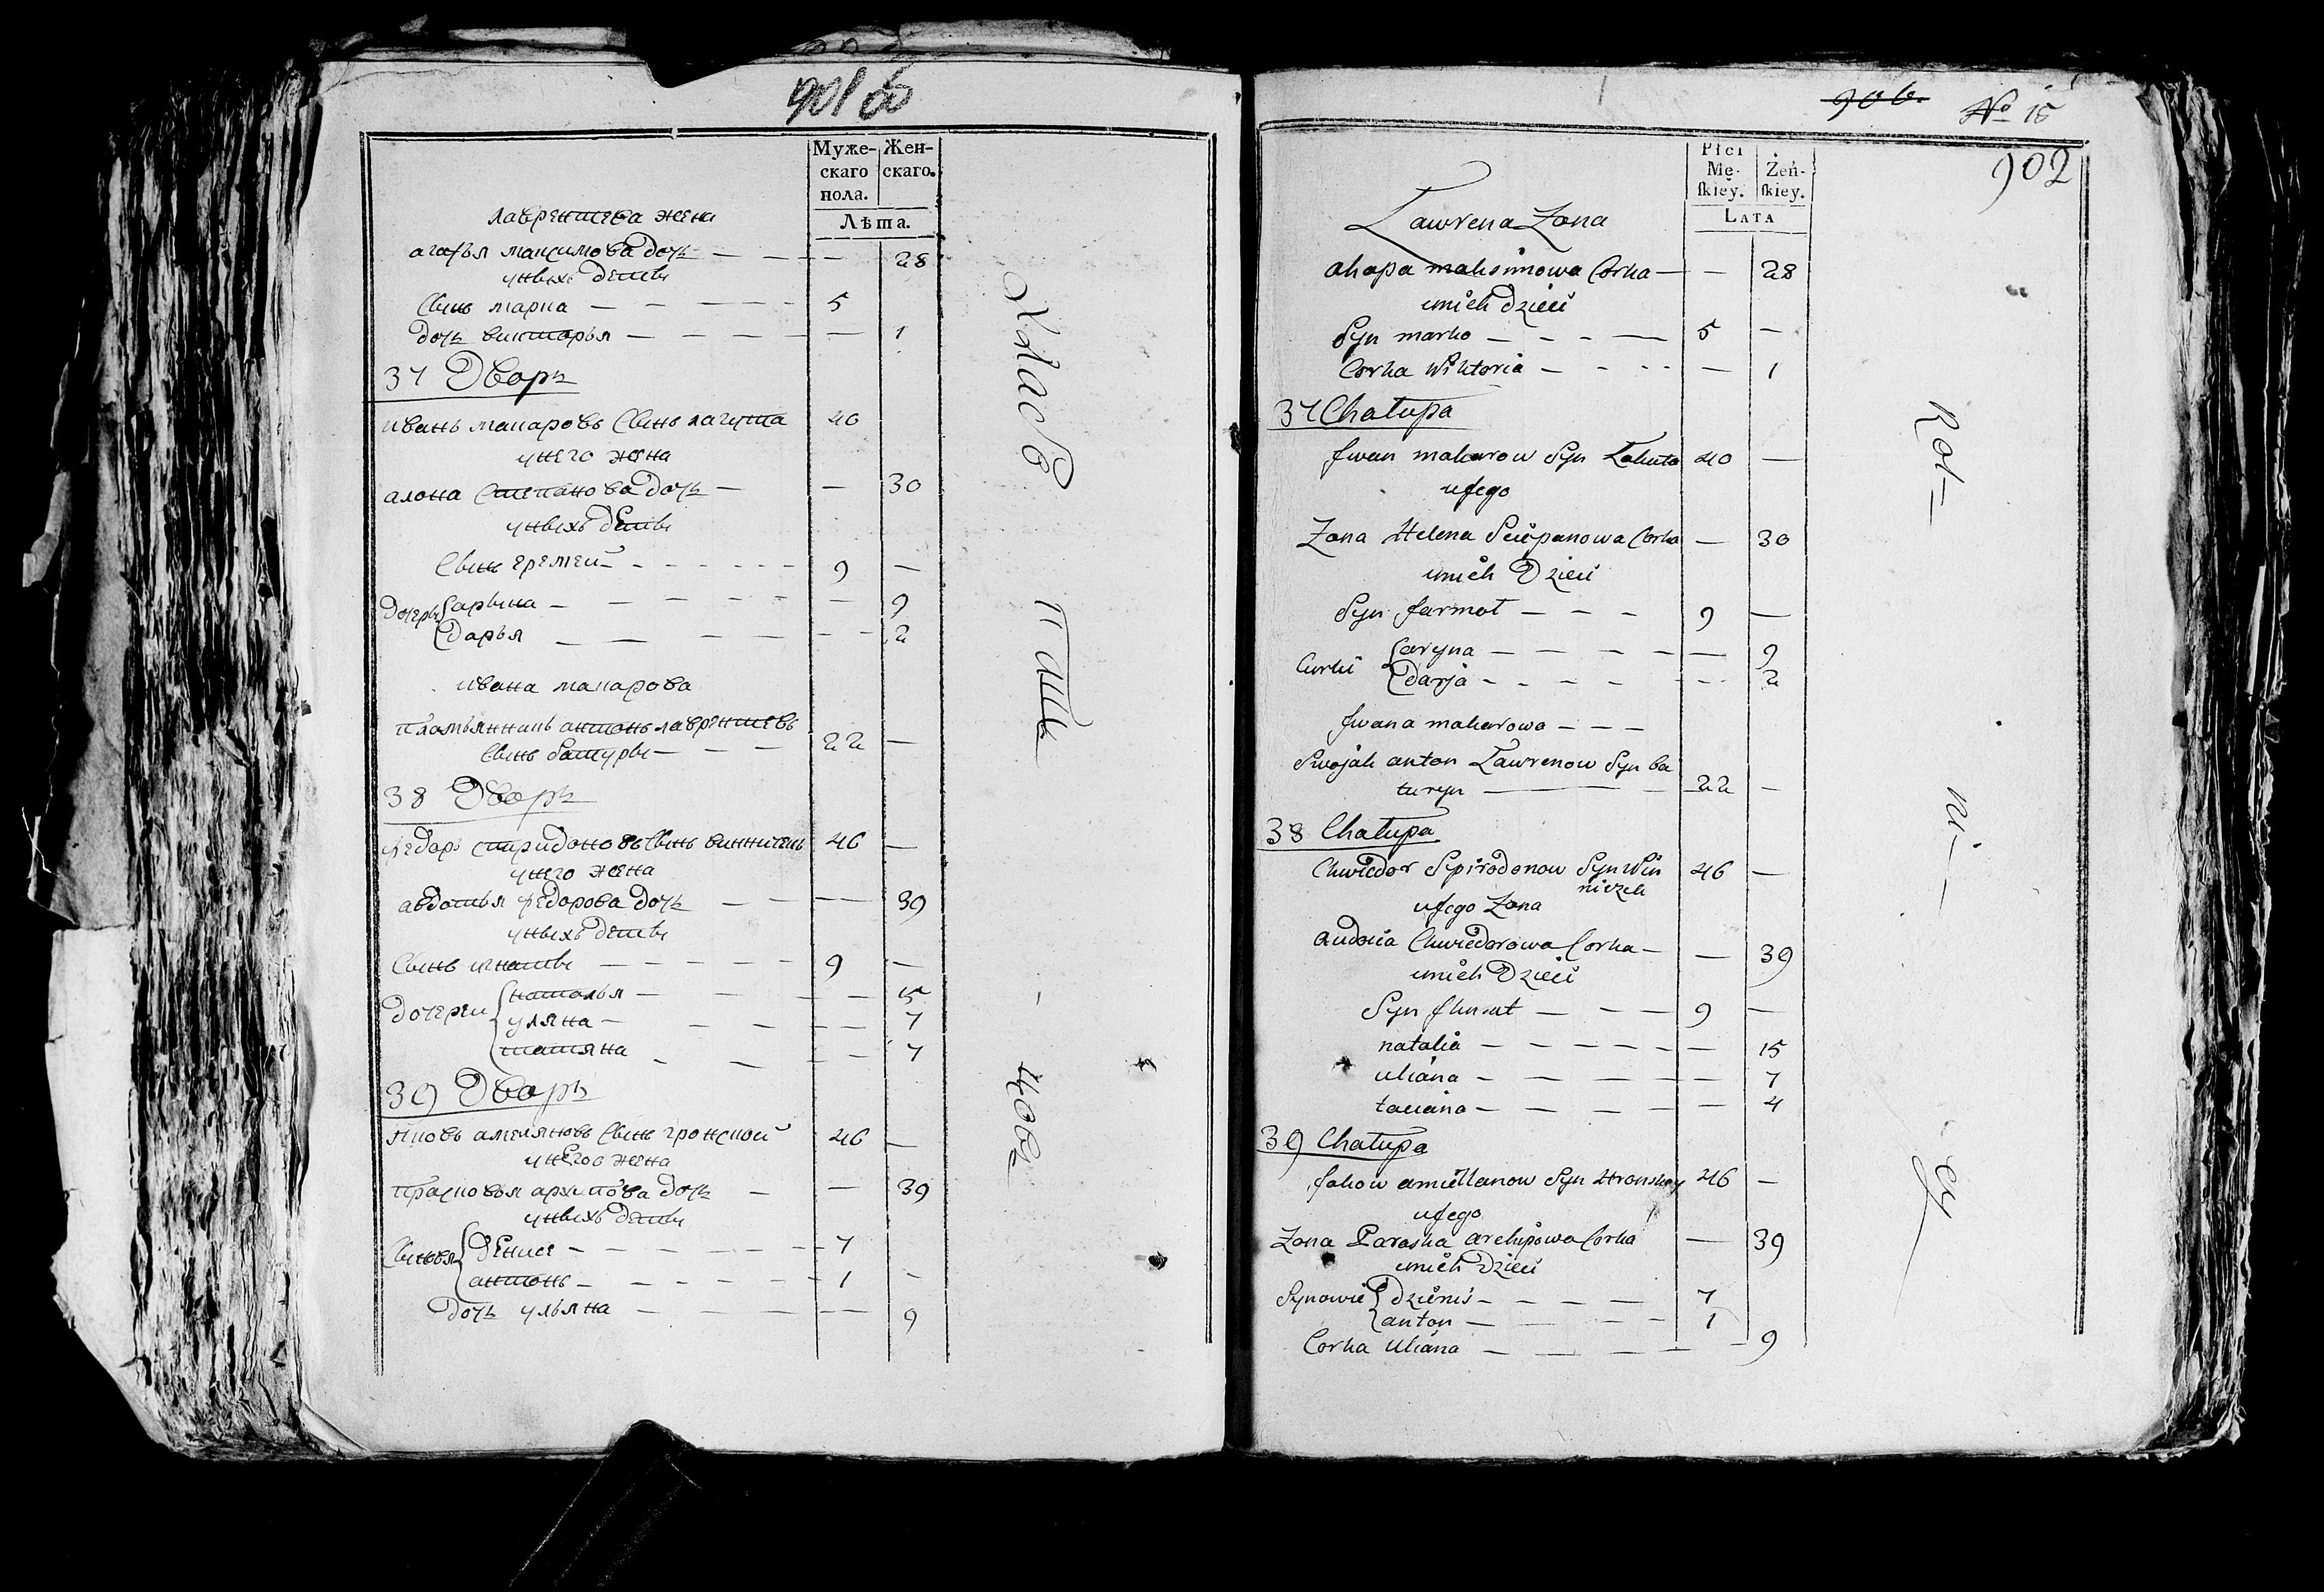 901 об
Муже-
скаго
пола.
Жен-
скаго.
Лѣта.
лаврентиева жена
агафья максимова дочь — — — 28
унихъ дети
Сынъ марка — — — 5
дочь викторья — — — — 1
37 Дворъ
иванъ макаровъ Сынъ лагута 40
унего жена
алона Степанова дочь — — 30
унихъ дети
Сынъ еремеи — — — 9 —
дочеры
арына — — — — 9
дарья — — — — 2
ивана макарова
пламянникъ антонъ лаврентиевъ
Сынъ батуры — — — 22 —
38 Дворъ
федоръ спиридоновъ Сынъ винничекъ 46 —
унего жена
авдотья федорова дочь — — — 39
унихъ дети
Сынъ игнати — — — — 9 —
дочереи
наталья — — — — 15
уляна — — — — 7
татяна — — — — 7
39 Дворъ
яковъ амеляновъ Сынъ гронской 46 —
унегоо жена
прасковья архипова дочь — — 39
унихъ дети
Сыновья
денисе — — — — 7
антонъ — — — — 1 —
дочь ульяна — — — — 9
Хлаб
паш
-
цовъ
906. № 15
902
Płci
Mę-
ſkiey.
Żeń-
ſkiey.
LATA
Lawrena Zona
ahapa maksimowa Corka — — 28
unich dzieci
Syn marko — — — 5 —
Corka Wiktoria — — — — 1
37 Chałupa
Jwan makarow Syn Lahuta 40 —
uJego
Zona Helena Sciepanowa Corka — 30
unich Dzieci
Syn Jarmot — — — 9 —
Curki
aryna — — — — — 9
darja — — — — — 2
Jwana makarowa — — —
Swojak anton Lawrenow Syn ba
turyn — — 22 —
38 Chałupa
Chwiedor Spirodonow Syn Win 46 —
niczek
uJego Zona
audocia Chwiedorowa Corka — — 39
unich Dzieci
Syn Jhnat — — — 9 —
natalia — — — — — — 15
uliana — — — — — 7
taciana — — — — — 4
39 Chałupa
Jakow amiellanow Syn Hronskoy 46 —
uJego
Zona Paraska archipowa Corka — 39
unich Dzieci
Synowie
dzienis — — — — 7
anton — — — — 1
Corka Uliana — — — — 9
Rol=
ni—
cy